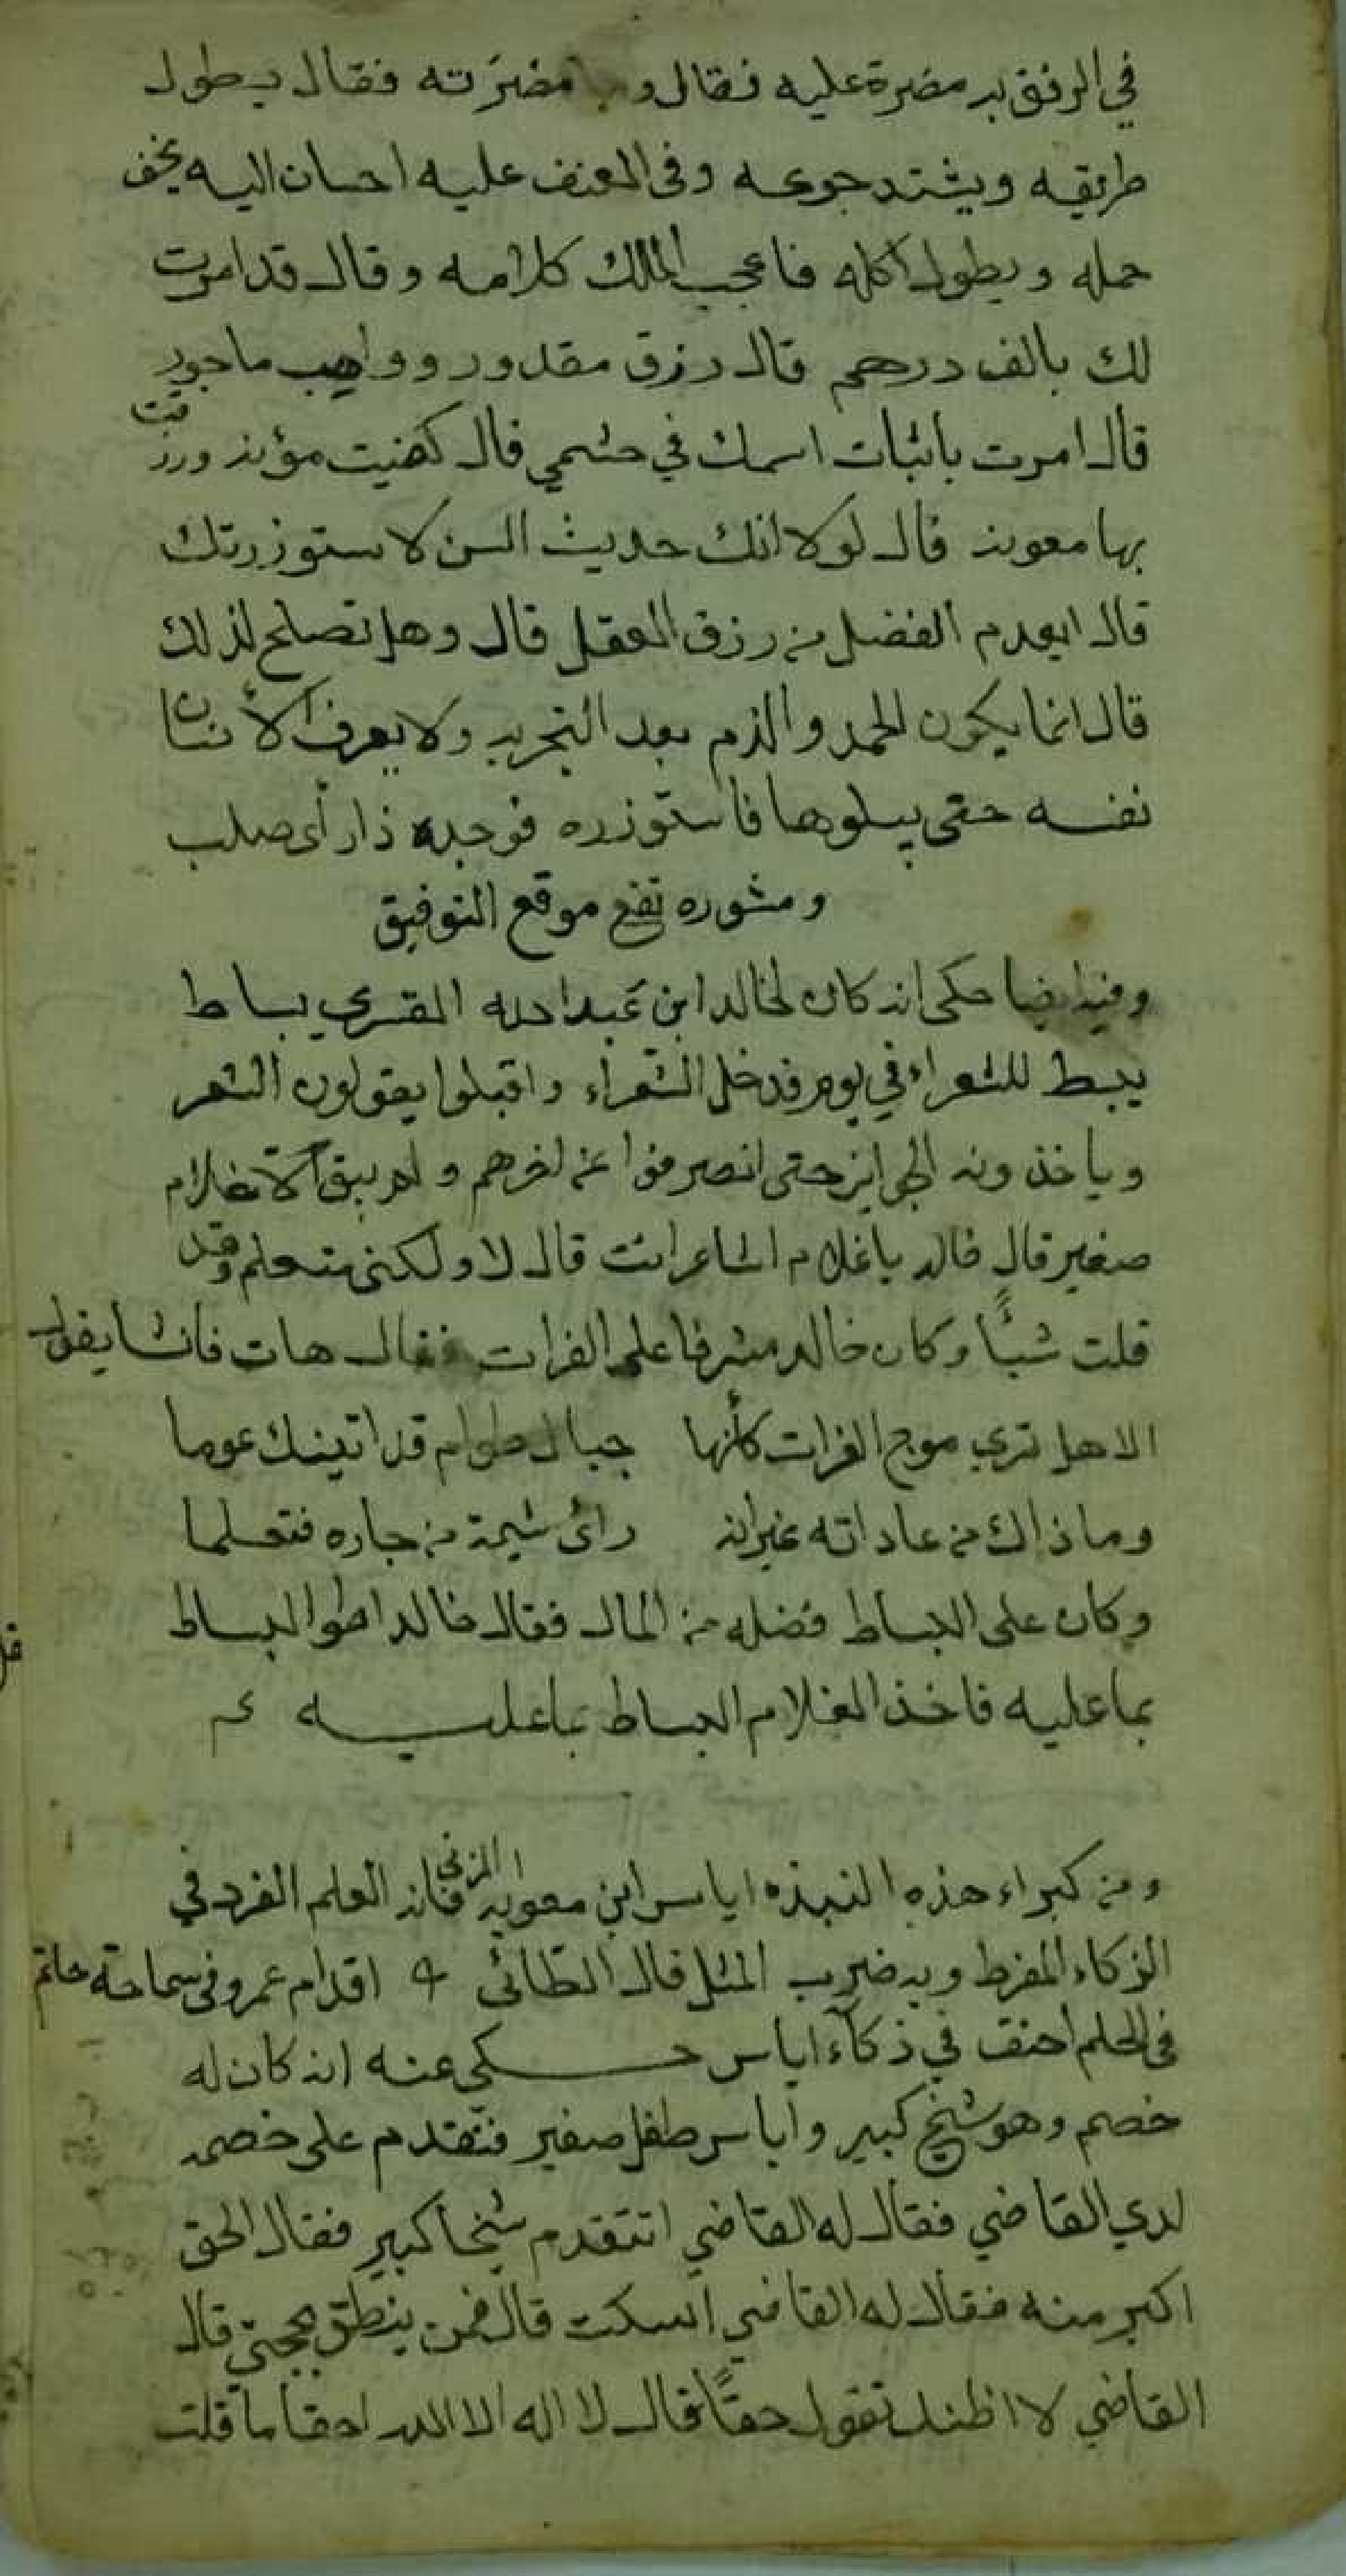 في الرفق به مضرة عليه فقال وما مضرته فقال يطول
طريقه ويشتد جوعه وفي العنف عليه احسان اليه يخف
حمله ويطول اكله فاعجب الملك كلامه وقال قد امرت
لك بالف درهم قال رزق مقدور وواهب ماجور
قال امرت باثبات اسمك في حشمي قال كفيت مؤنه ورزقت
بها معونه قال لولا انك حديث السن لاستوزرتك
قال ايعدم الفضل من رزق العقل قال وهل تصلح لذلك
قال انما يكون الحمد والذم بعد التجربه ولا يعرف الانسان
نفسه حتى يبلوها فاستوزره فوجده ذا رأى صلب
ومشوره تقع موقع التوفيق
وفيه ايضا حكى انه كان لخالد ابن عبد الله القسري بساط
يبسط للشعراء في يوم فدخل الشعراء واقبلوا يقولون الشعر
وياخذونه الجوايز حتى انصرفوا عن اخرهم ولم يبق الا غلام
صغير قال خالد ياغلام اشاعر انت قال لا ولكني متعلم وقد
قلت شيئًا وكان خالد مشرفا على الفرات فقال هات فانشا يقول
الا هل تري موج الفرات كأنها جبال طوام قد اتينك عوما
وما ذاك من عاداته غير انه رائ شيمة من جاره فتعلما
وكان على البساط فضله من المال فقال خالد اطوا البساط
بما عليه فاخذ الغلام البساط بما عليه
ومن كبراء هذه النبذه اياس ابن معويه المزني فانه العلم الفرد في
الزكاء المفرط وبه ضرب المثل قال الطائي اقدام عمرو في سماحة حاتم
في الحلم احنف في ذكاء اياس حكى عنه انه كان له
خصم وهو شيخ كبير واياس طفل صغير فتقدم على خصمه
لدي القاضي فقال له القاضي اتتقدم شيخا كبير فقال الحق
اكبر منه فقال له القاضي اسكت قال فمن ينطق بحجتي قال
القاضي لا اظنك تقول حقًا قال لا اله الا الله احقا ما قلت